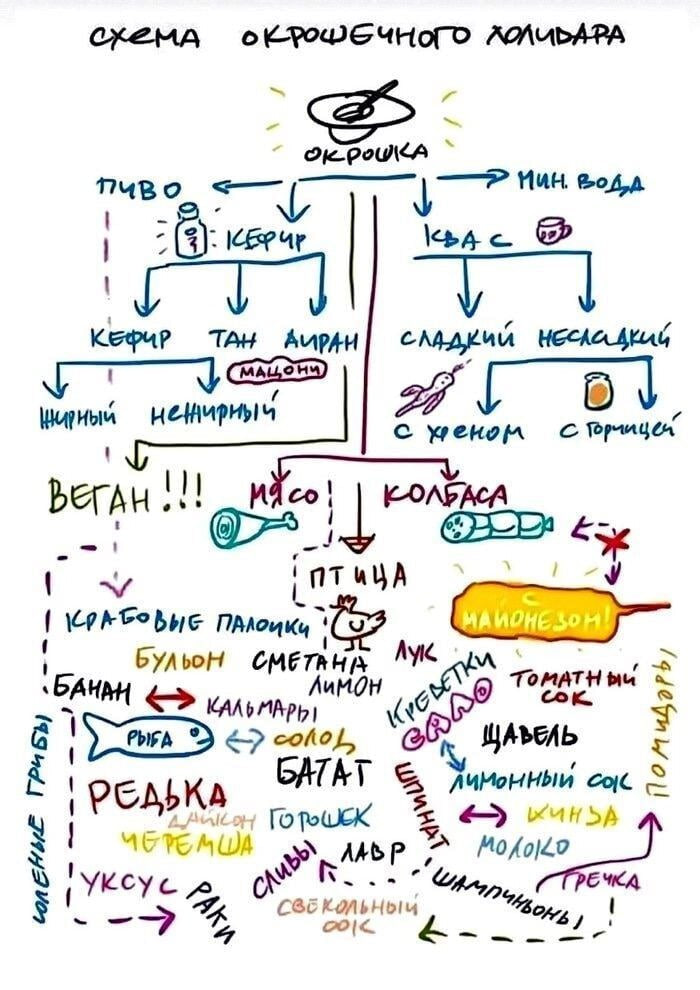 СХЕМА ОКРОШЕЧНОГО ХОЛИВАРА
ОКРОШКА
ПИВО
МИН. ВОДА
КЕФИР
КВАС
КЕФИР ТАН АЙРАН
СЛАДКИЙ НЕСЛАДКИЙ
МАЦОНИ
ЖИРНЫЙ НЕЖИРНЫЙ
С ХРЕНОМ С ГОРЧИЦЕЙ
ВЕГАН!!!
МЯСО КОЛБАСА
ПТИЦА
С МАЙОНЕЗОМ!
КРАБОВЫЕ ПАЛОЧКИ
БУЛЬОН СМЕТАНА ЛУК
БАНАН
ЛИМОН
КРЕВЕТКИ
ТОМАТНЫЙ
СОК
ПОМИДОРЫ
КАЛЬМАРЫ
САЛО
РЫБА
СОЛОД
ЩАВЕЛЬ
СОЛЕНЫЕ ГРИБЫ
БАТАТ
ЛИМОННЫЙ СОК
РЕДЬКА
ШПИНАТ
ДАЙКОН
ГОРОШЕК
КИНЗА
ЧЕРЕМША
ЛАВР
МОЛОКО
УКСУС
РАКИ
СЛИВЫ
ШАМПИНЬОНЫ
ГРЕЧКА
СВЕКОЛЬНЫЙ
СОК